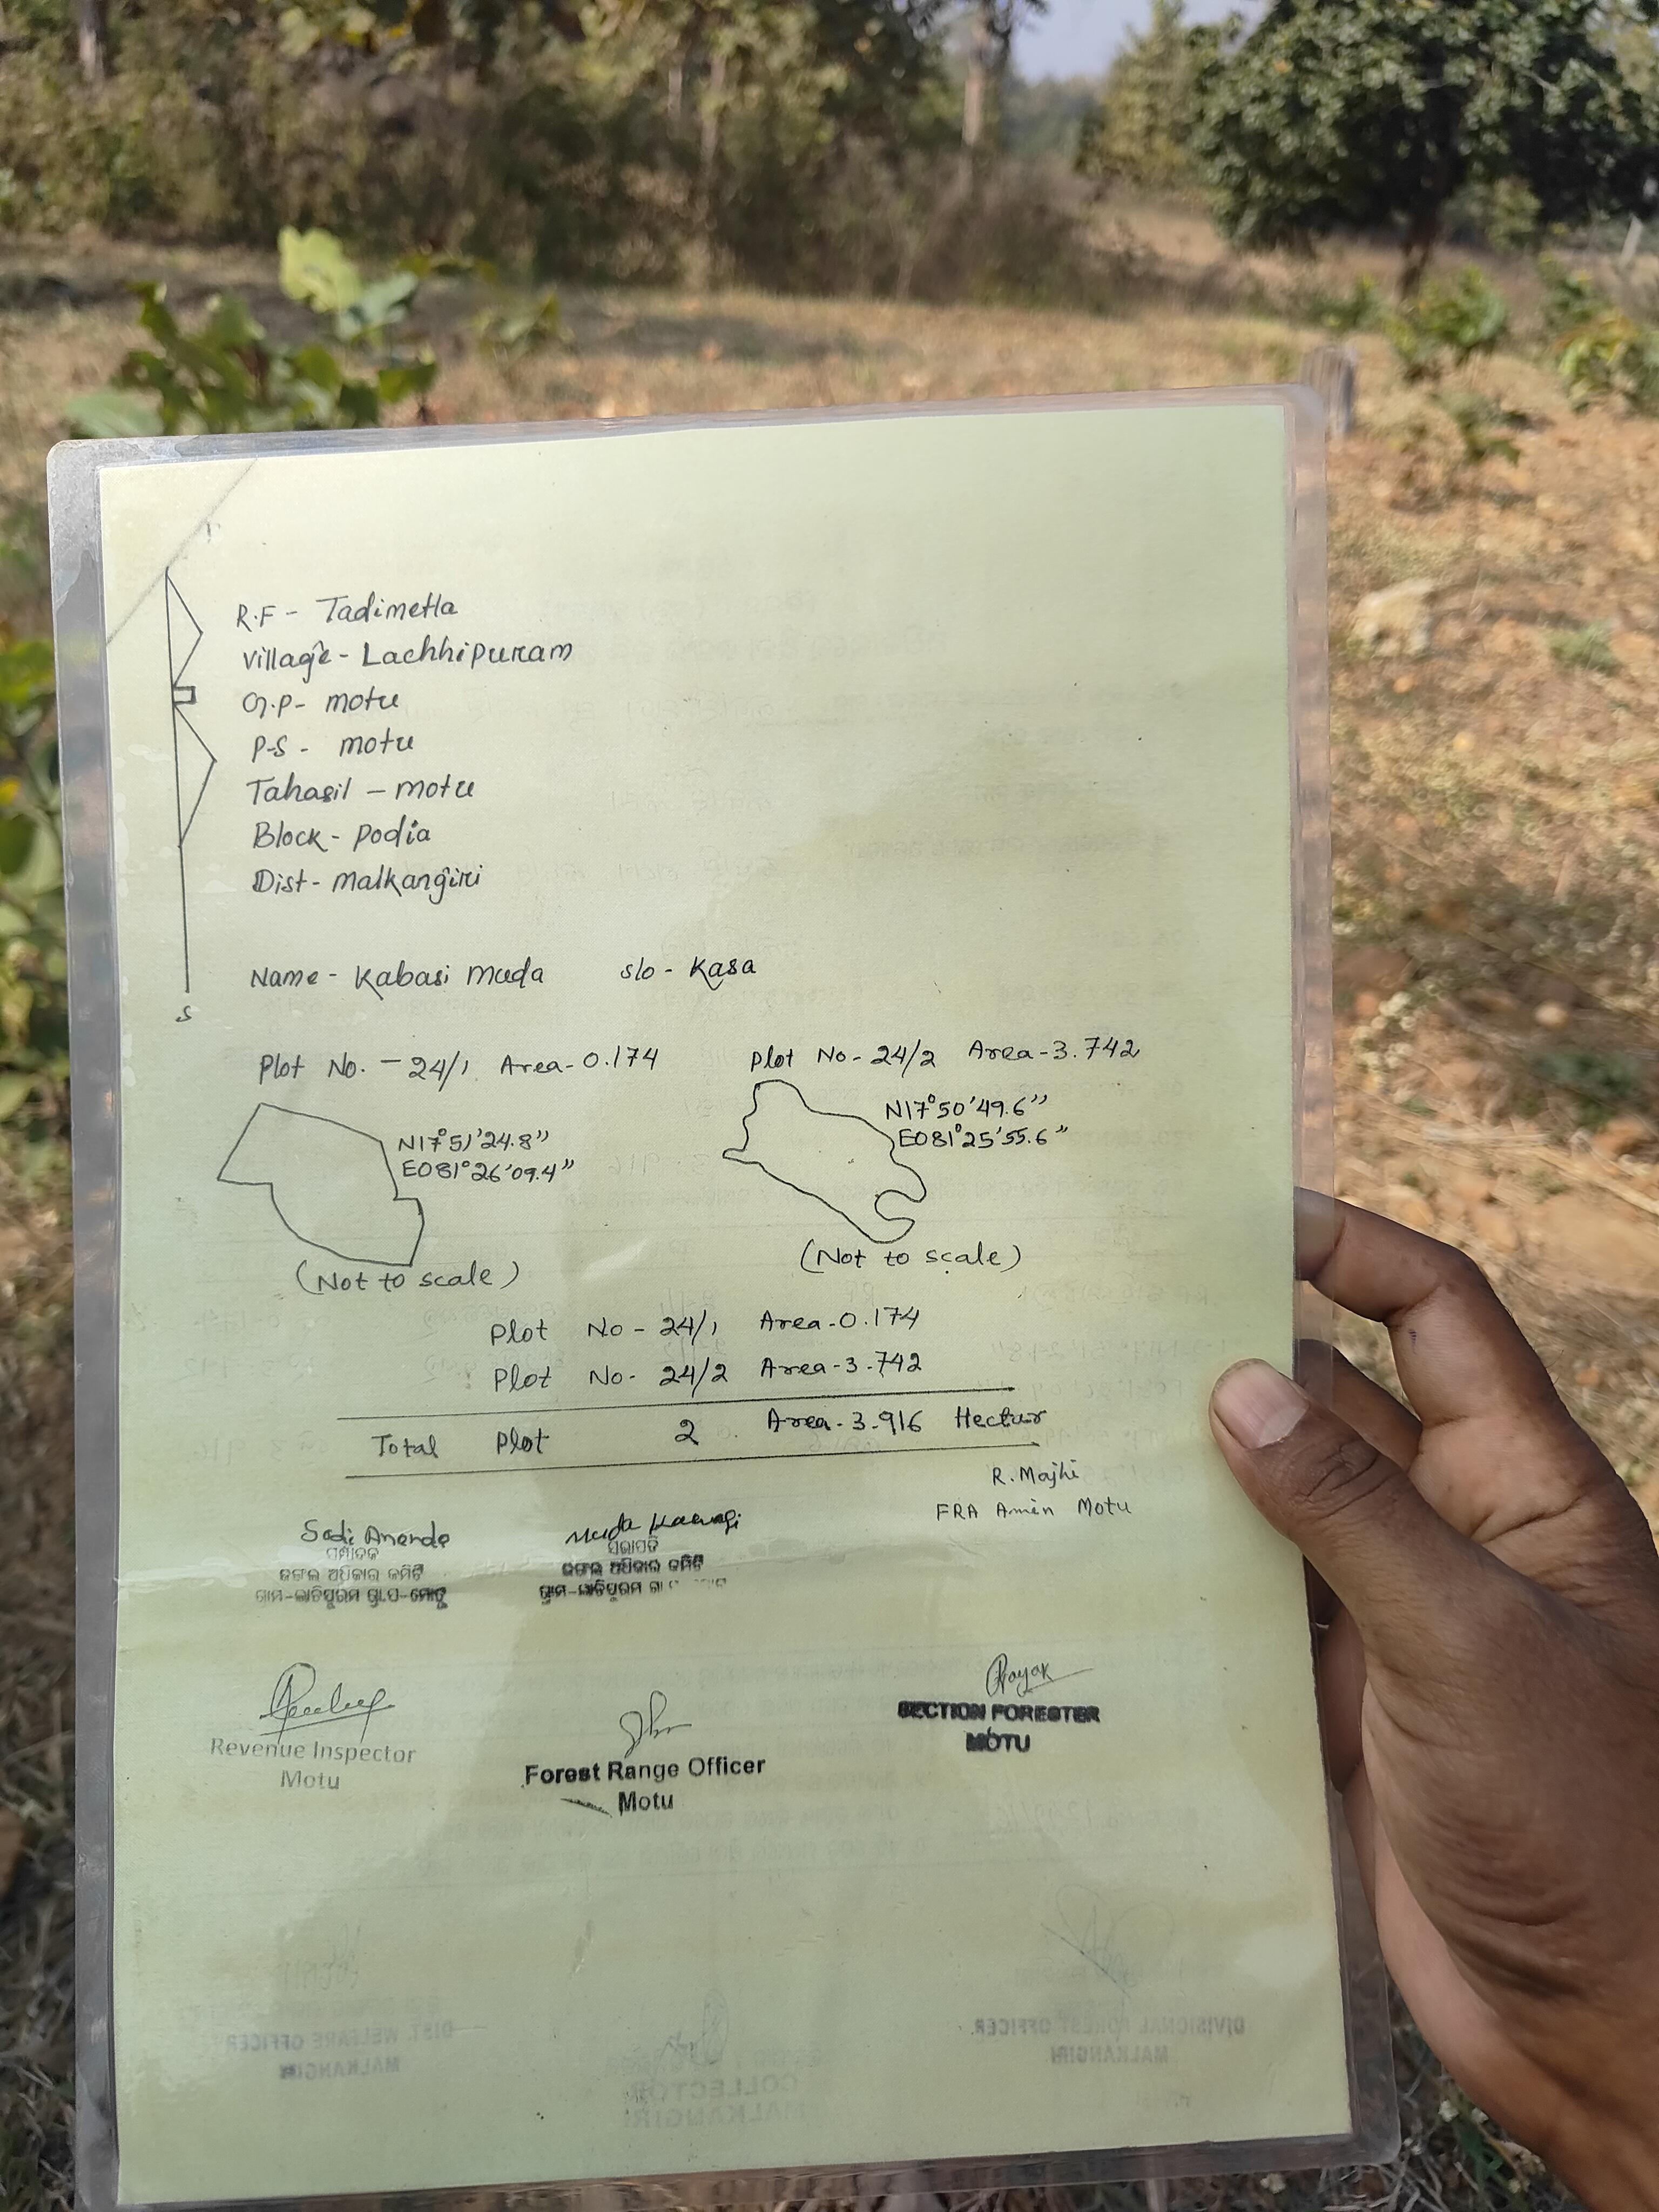 R.F - Tadimetla
Village - Lachhipuram
G.P - motu
P.S - motu
Tahasil - motu
Block - podia
Dist - malkangiri
S
Name - Kabasi Muda s/o - Kasa
Plot No. - 24/1 Area - 0.174 Plot No - 24/2 Area - 3.742
N17°51'24.8"
E081°26'09.4"
N17°50'49.6"
E081°25'55.6"
(Not to scale) (Not to scale)
Plot No - 24/1 Area - 0.174
Plot No - 24/2 Area - 3.742
Total Plot 2 Area - 3.916 Hectur
R. Majhi
FRA Amin Motu
Sodi Ananda
ସମ୍ପାଦକ
ଜଙ୍ଗଲ ଅଧିକାର କମିଟି
ଗ୍ରାମ-ଲାଚିପୁରମ ଗ୍ରା.ପ-ମୋଟୁ
Muda
ସଭାପତି
ଜଙ୍ଗଲ ଅଧିକାର କମିଟି
ଗ୍ରାମ-ଲାଚିପୁରମ
Revenue Inspector
Motu
Forest Range Officer
Motu
Nayak
SECTION FORESTER
MOTU
DIST. WELFARE OFFICER
MALKANGIRI
COLLECTOR
MALKANGIRI
DIVISIONAL FOREST OFFICER
MALKANGIRI